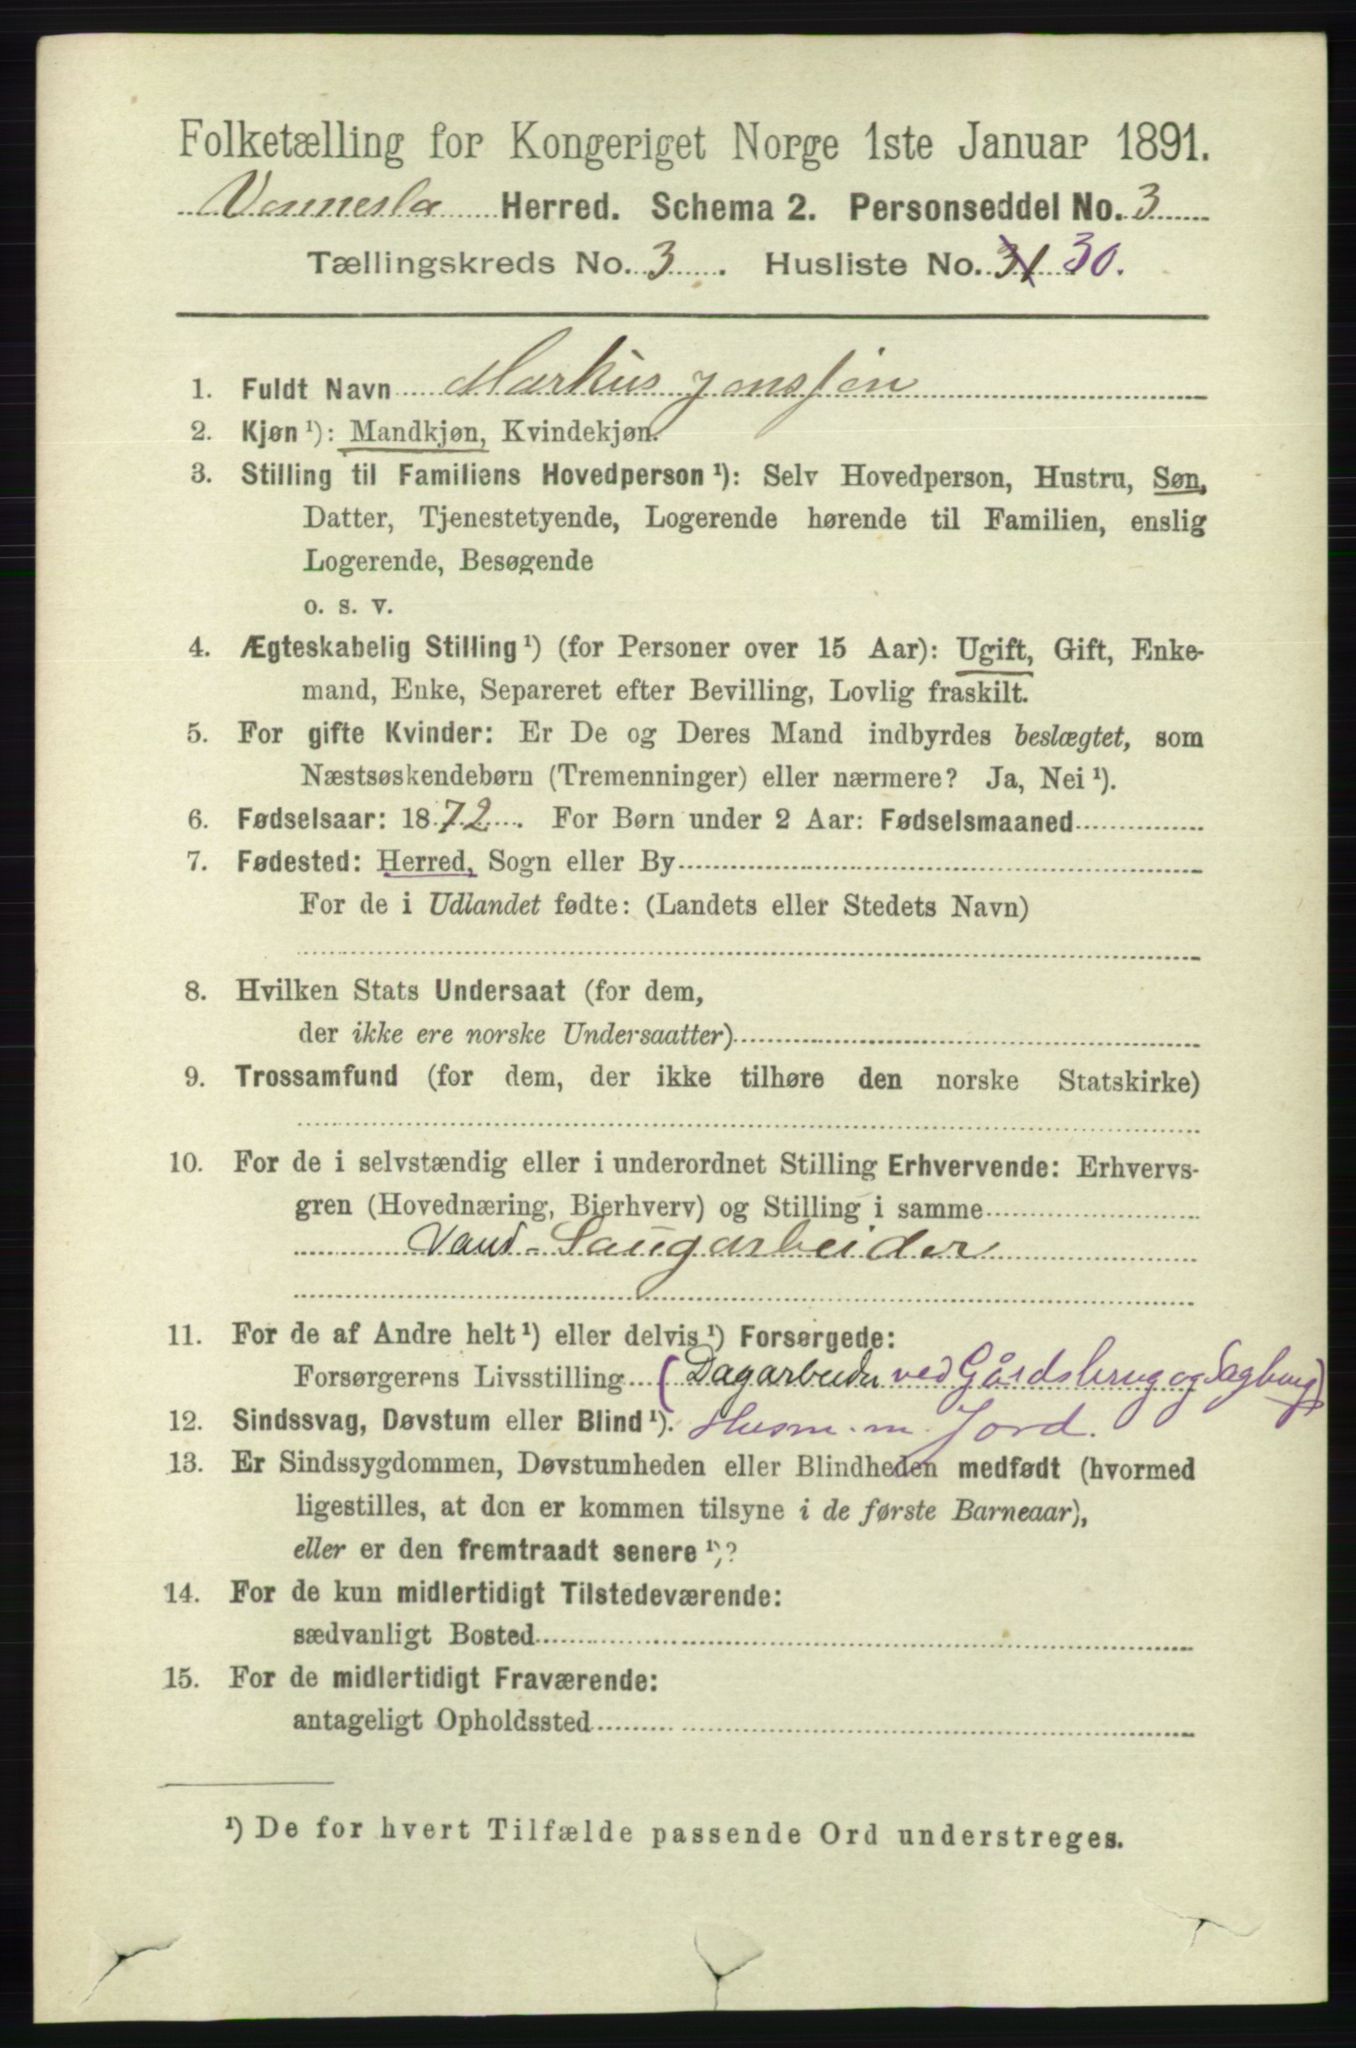 Folketælling for Kongeriget Norge 1ste Januar 1891.
Vennesla Herred. Schema 2. Personseddel No. 3
Tællingskreds No. 3. Husliste No. 31 30.
1. Fuldt Navn Markus Jensen
2. Kjøn ¹): Mandkjøn, Kvindekjøn.
3. Stilling til Familiens Hovedperson ¹): Selv Hovedperson, Hustru, Søn,
Datter, Tjenestetyende, Logerende hørende til Familien, enslig
Logerende, Besøgende
o. s. v.
4. Ægteskabelig Stilling ¹) (for Personer over 15 Aar): Ugift, Gift, Enke-
mand, Enke, Separeret efter Bevilling, Lovlig fraskilt.
5. For gifte Kvinder: Er De og Deres Mand indbyrdes beslægtet, som
Næstsøskendebørn (Tremenninger) eller nærmere? Ja, Nei ¹).
6. Fødselsaar: 1872. For Børn under 2 Aar: Fødselsmaaned
7. Fødested: Herred, Sogn eller By
For de i Udlandet fødte: (Landets eller Stedets Navn)
8. Hvilken Stats Undersaat (for dem,
der ikke ere norske Undersaatter)
9. Trossamfund (for dem, der ikke tilhøre den norske Statskirke)
10. For de i selvstændig eller i underordnet Stilling Erhvervende: Erhvervs-
gren (Hovednæring, Bierhverv) og Stilling i samme
Vand-Saugarbeider
11. For de af Andre helt ¹) eller delvis ¹) Forsørgede:
Forsørgerens Livsstilling (Dagarbeider ved Gårdsbrug og Sagbrug)
12. Sindssvag, Døvstum eller Blind ¹). Husm. m. Jord.
13. Er Sindssygdommen, Døvstumheden eller Blindheden medfødt (hvormed
ligestilles, at den er kommen tilsyne i de første Barneaar),
eller er den fremtraadt senere ¹)?
14. For de kun midlertidigt Tilstedeværende:
sædvanligt Bosted
15. For de midlertidigt Fraværende:
antageligt Opholdssted
¹) De for hvert Tilfælde passende Ord understreges.